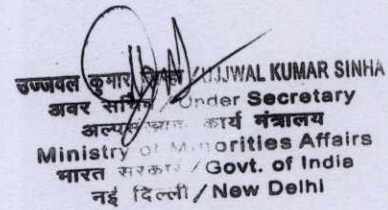 उज्जवल कुमार /UJJWAL KUMAR SINHA
अवर /Under Secretary
कार्य मंत्रालय
Ministry of Minorities Affairs
भारत सरकार / Govt. of India
नई दिल्ली / New Delhi